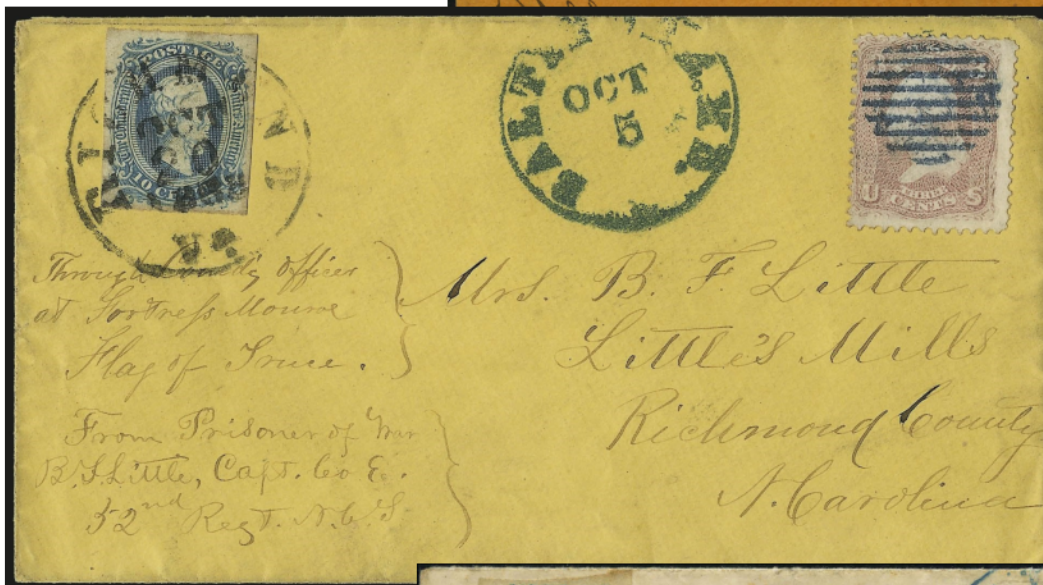 POSTAGE
10 CENTS
RICHMOND
OCT
VA
BALTIMORE MD.
OCT
5
U THREE CENTS S
Through Comd'g Officer
at Fortress Monroe
Flag of Truce.
From Prisoner of War
B. F. Little, Capt. Co E.
52nd Regt. N.C.T.
Mrs. B. F. Little
Little's Mills
Richmond County
N. Carolina